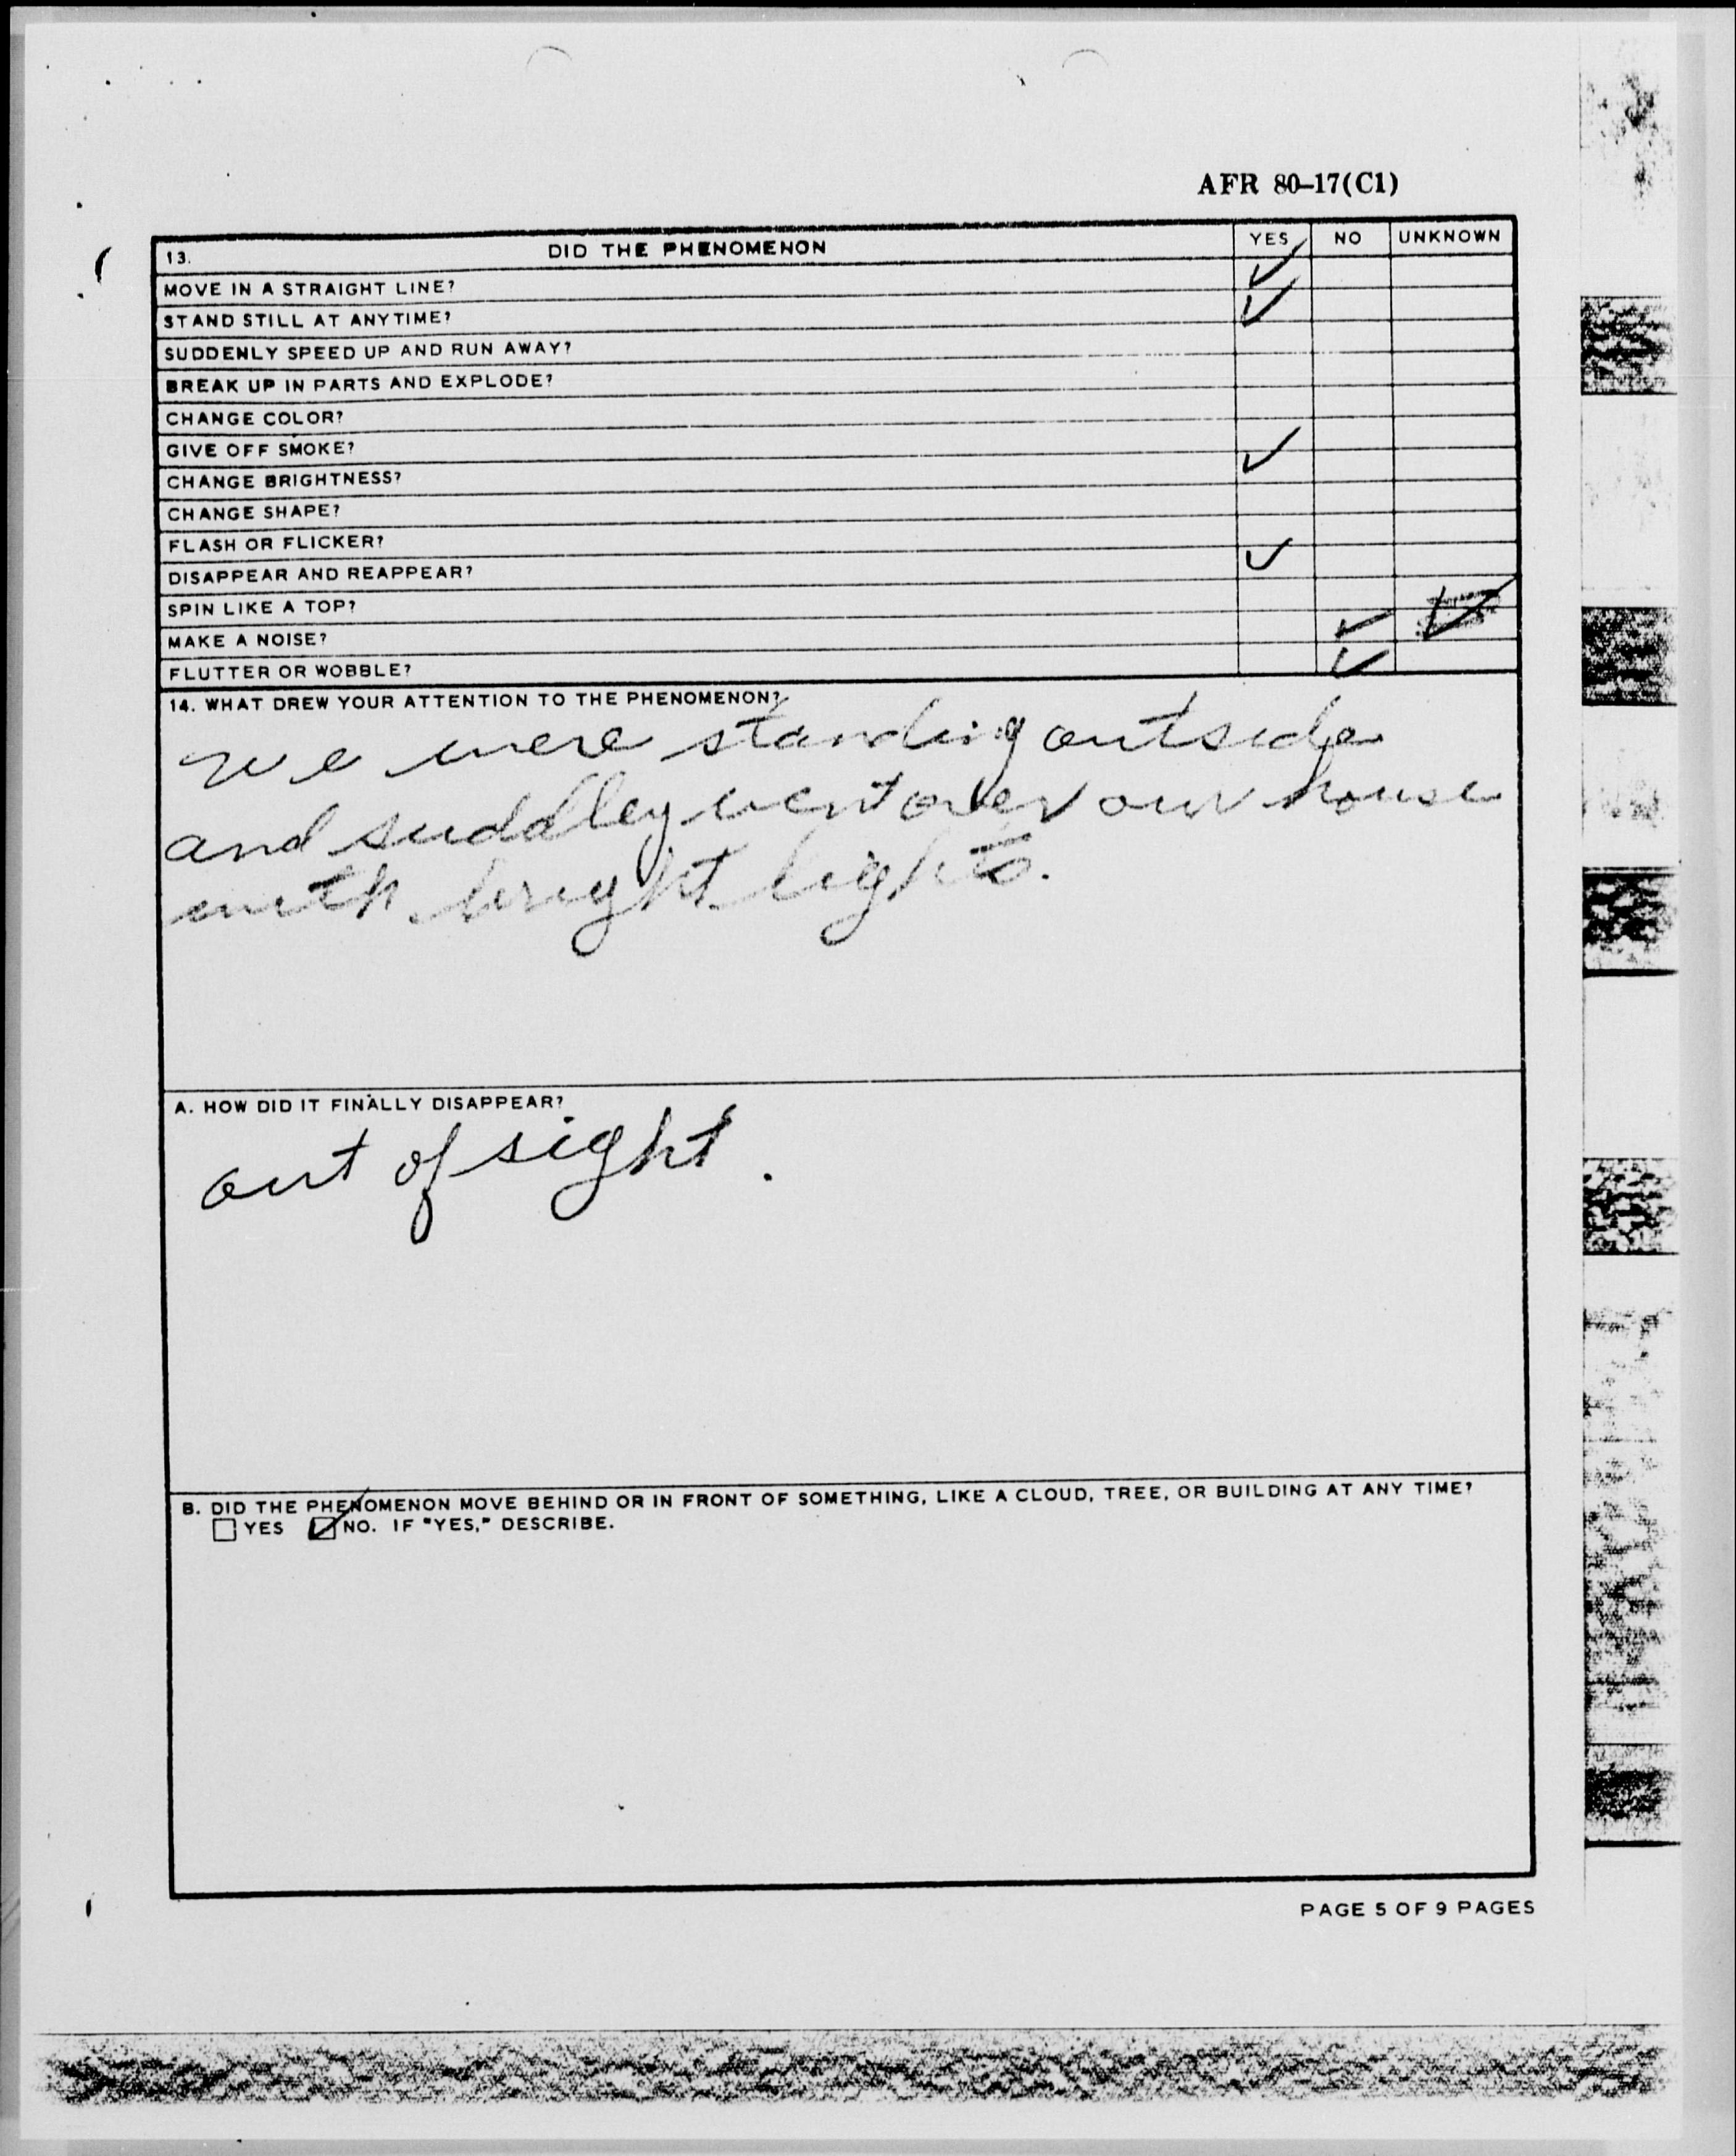 AFR 80-17(C1)
13. DID THE PHENOMENON YES NO UNKNOWN
MOVE IN A STRAIGHT LINE? ✓
STAND STILL AT ANYTIME? ✓
SUDDENLY SPEED UP AND RUN AWAY?
BREAK UP IN PARTS AND EXPLODE?
CHANGE COLOR?
GIVE OFF SMOKE?
CHANGE BRIGHTNESS? ✓
CHANGE SHAPE?
FLASH OR FLICKER?
DISAPPEAR AND REAPPEAR? ✓
SPIN LIKE A TOP?
MAKE A NOISE? ✓ ✓
FLUTTER OR WOBBLE? ✓
14. WHAT DREW YOUR ATTENTION TO THE PHENOMENON?
we were standing outside
and suddley went over our house
with bright lights.
A. HOW DID IT FINALLY DISAPPEAR?
out of sight.
B. DID THE PHENOMENON MOVE BEHIND OR IN FRONT OF SOMETHING, LIKE A CLOUD, TREE, OR BUILDING AT ANY TIME?
☐ YES ☑ NO. IF "YES," DESCRIBE.
PAGE 5 OF 9 PAGES